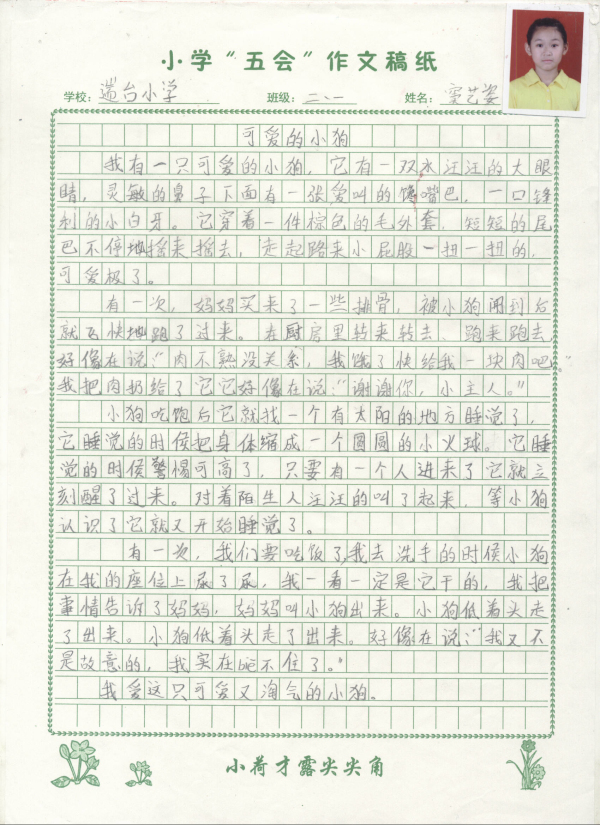 小学“五会”作文稿纸
学校：遥台小学 班级：二、一 姓名：窦艺姿
可爱的小狗
我有一只可爱的小狗，它有一双水汪汪的大眼
睛，灵敏的鼻子下面有一张爱叫的馋嘴巴，一口锋
利的小白牙。它穿着一件棕包的毛外套，短短的尾
巴不停地摇来摇去，走起路来小屁股一扭一扭的，
可爱极了。
有一次，妈妈买来了一些排骨，被小狗闻到后
就飞快地跑了过来。在厨房里转来转去、跑来跑去
好像在说：“肉不熟没关系，我饿了快给我一块肉吧。”
我把肉扔给了它它好像在说：“谢谢你，小主人。”
小狗吃饱后它就找一个有太阳的地方睡觉了，
它睡觉的时侯把身体缩成一个圆圆的小火球。它睡
觉的时侯警惕可高了，只要有一个人进来了它就立
刻醒了过来。对着陌生人汪汪的叫了起来，等小狗
认识了它就又开始睡觉了。
有一次，我们要吃饭了，我去洗手的时侯小狗
在我的座位上尿了尿，我一看一定是它干的，我把
事情告诉了妈妈，妈妈叫小狗出来。小狗低着头走
了出来。小狗低着头走了出来。好像在说：“我又不
是故意的，我实在呢不住了。”
我爱这只可爱又淘气的小狗。
小荷才露尖尖角